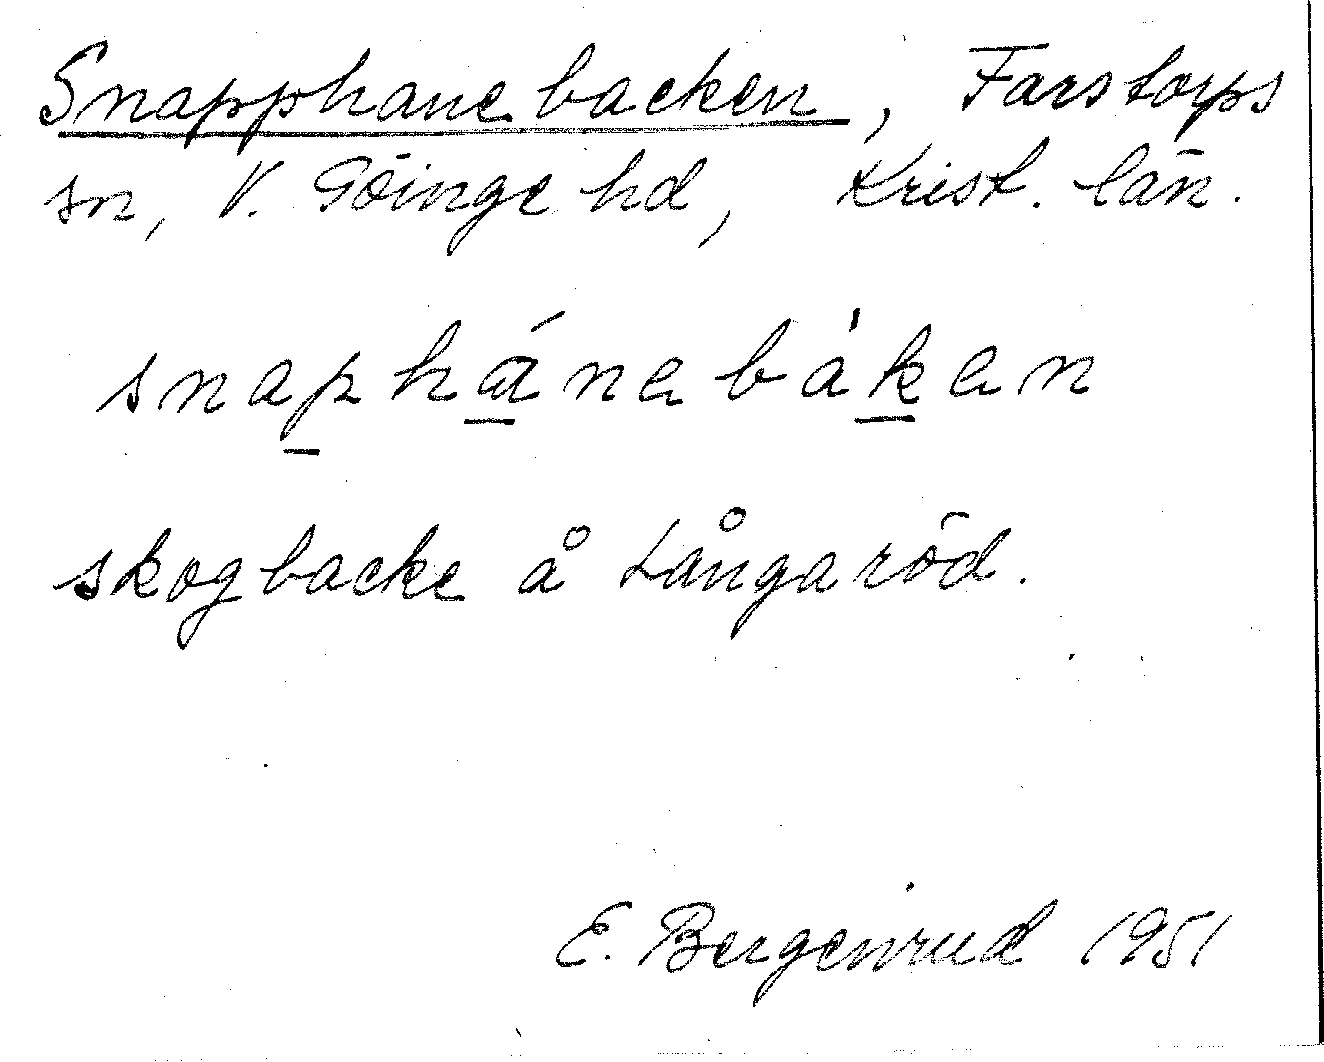 Snapphanebacken, Farstorps
sn, V. Göinge hd, Krist. län.
snaphánabàkan
skogbacke å Långaröd.
E. Bergenrud 1951